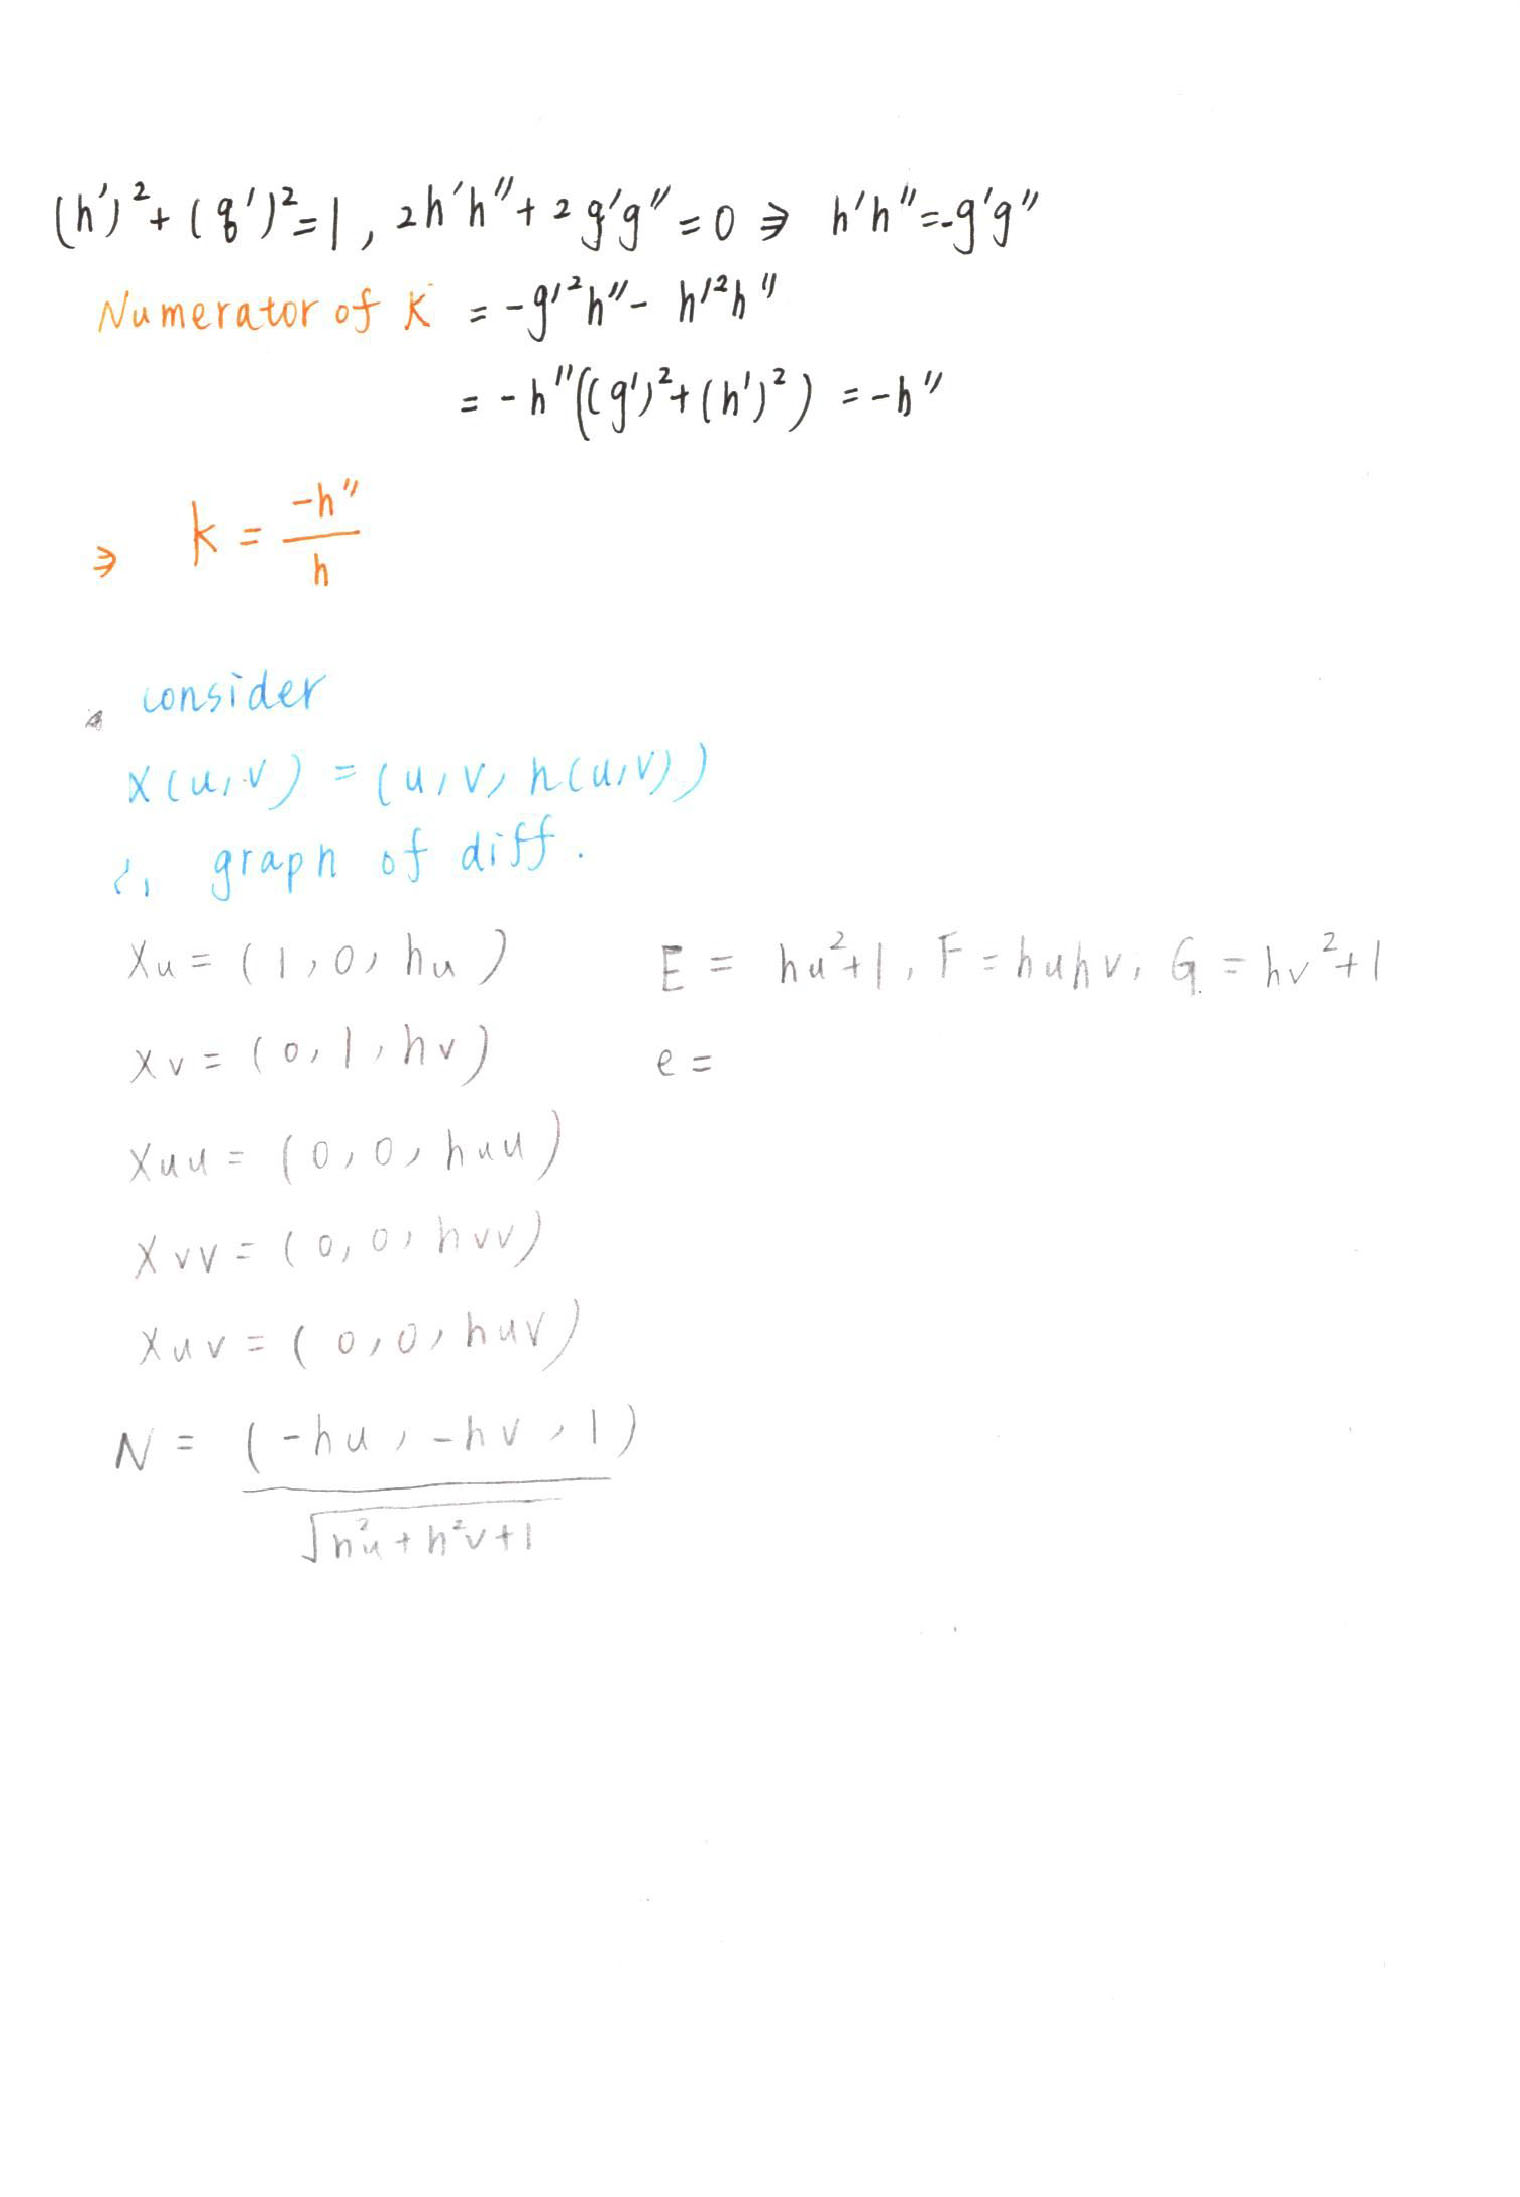 (h')²+(g')²=1, 2h'h''+2g'g''=0 ⇒ h'h''=-g'g''
Numerator of K = -g'²h''- h'²h''
= -h''((g')²+(h')²) = -h''
⇒ k = -h''/h
consider
X(u,v) = (u,v, h(u,v))
graph of diff.
Xu = (1,0, hu) E = hu²+1, F = huhv, G = hv²+1
Xv = (0,1,hv) e =
Xuu = (0,0, huu)
Xvv = (0,0, hvv)
Xuv = (0,0, huv)
N = (-hu, -hv, 1)/√h²u + h²v+1